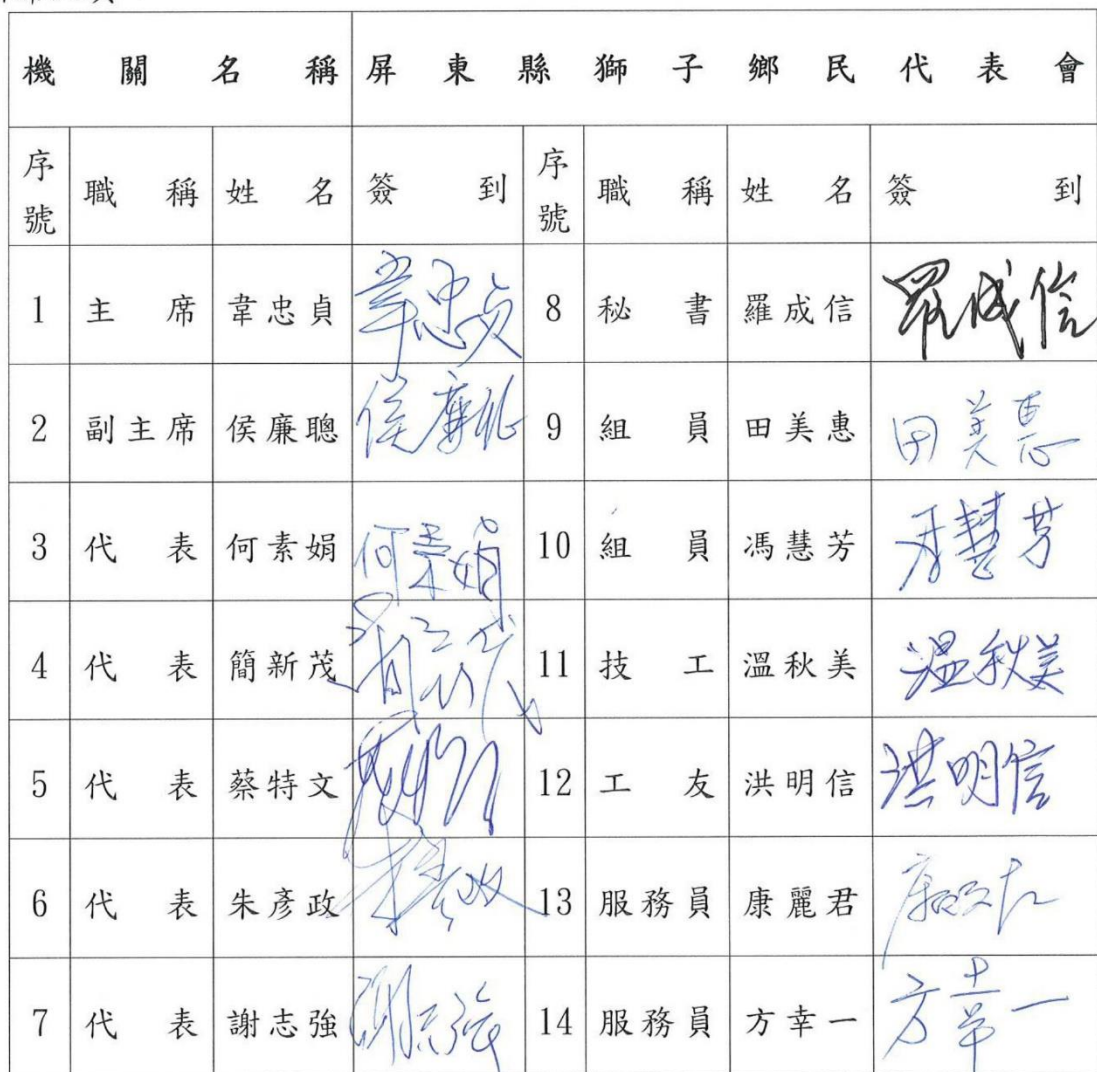 機關名稱 屏東縣獅子鄉民代表會
序號 職稱 姓名 簽到 序號 職稱 姓名 簽到
1 主席 韋忠貞 韋忠貞 8 秘書 羅成信 羅成信
2 副主席 侯廉聰 侯廉 9 組員 田美惠 田美惠
3 代表 何素娟 何素娟 10 組員 馮慧芳 慧芳
4 代表 簡新茂 11 技工 溫秋美 溫秋美
5 代表 蔡特文 12 工友 洪明信 洪明信
6 代表 朱彥政 朱彥政 13 服務員 康麗君
7 代表 謝志強 謝志強 14 服務員 方幸一 方幸一